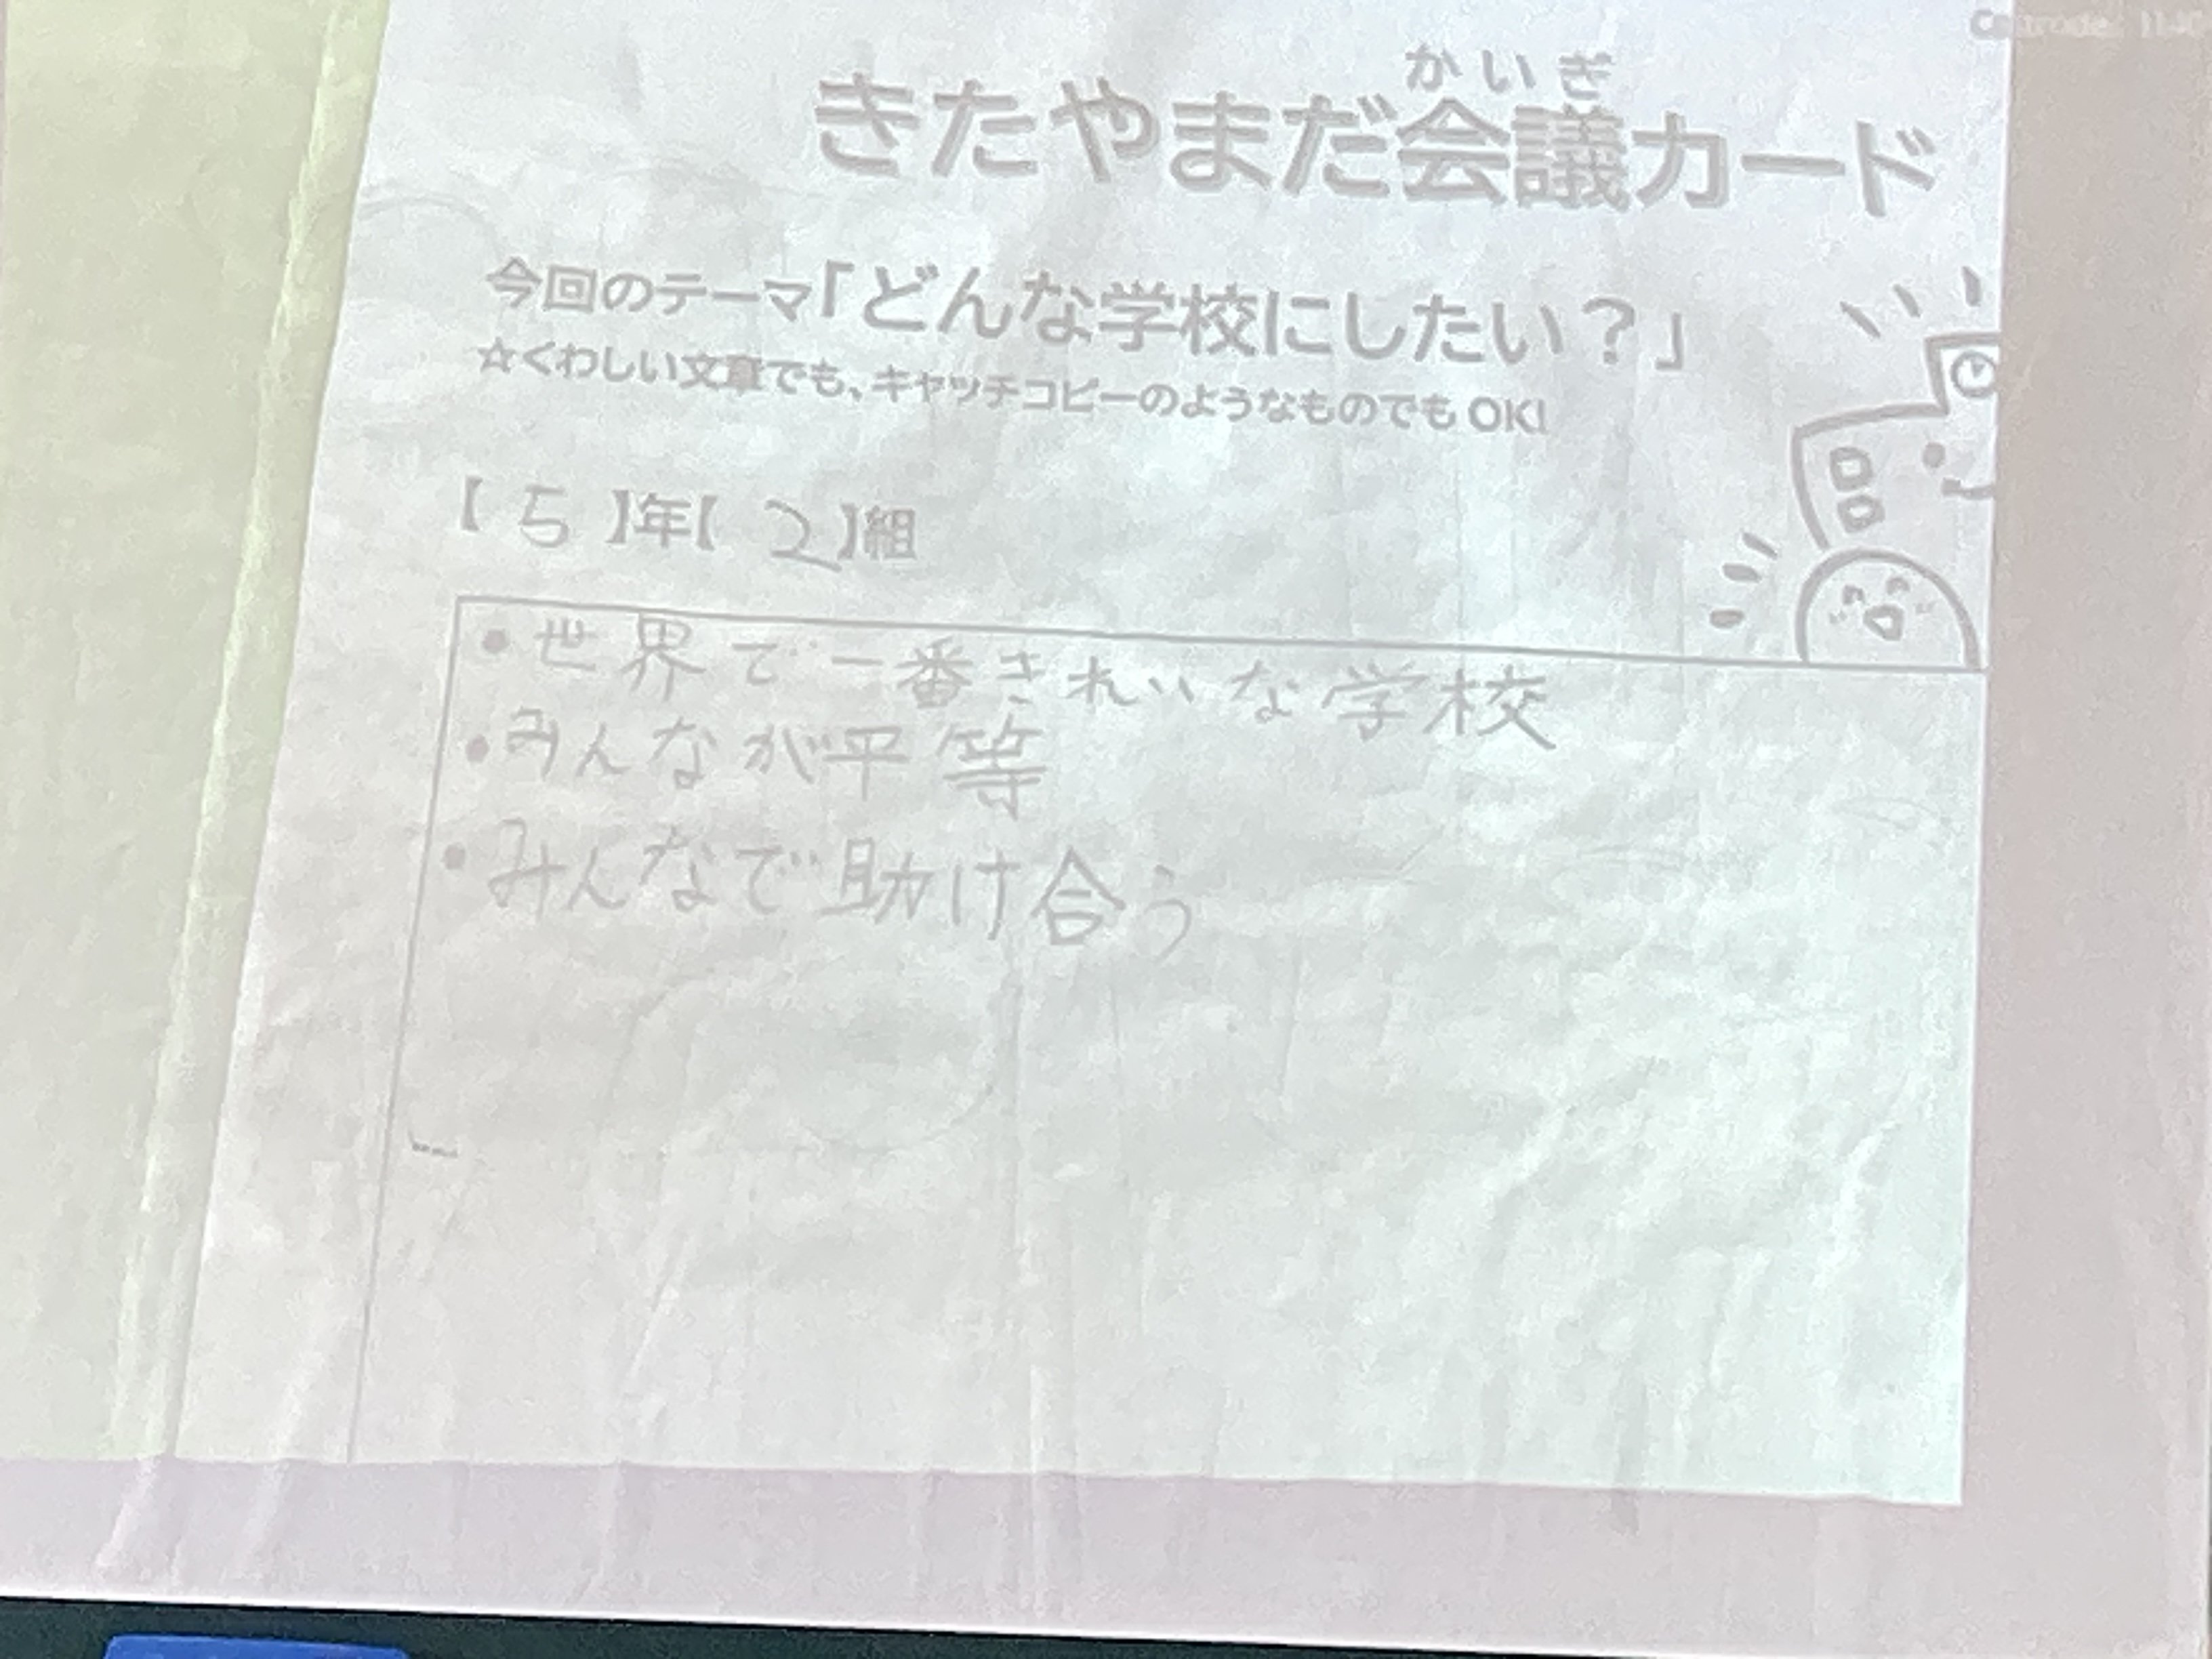 かいぎ
きたやまだ会議カード
今回のテーマ「どんな学校にしたい？」
☆くわしい文章でも、キャッチコピーのようなものでもOK!
【 5 】年【 2 】組
・世界で一番きれいな学校
・みんなが平等
・みんなで助け合う